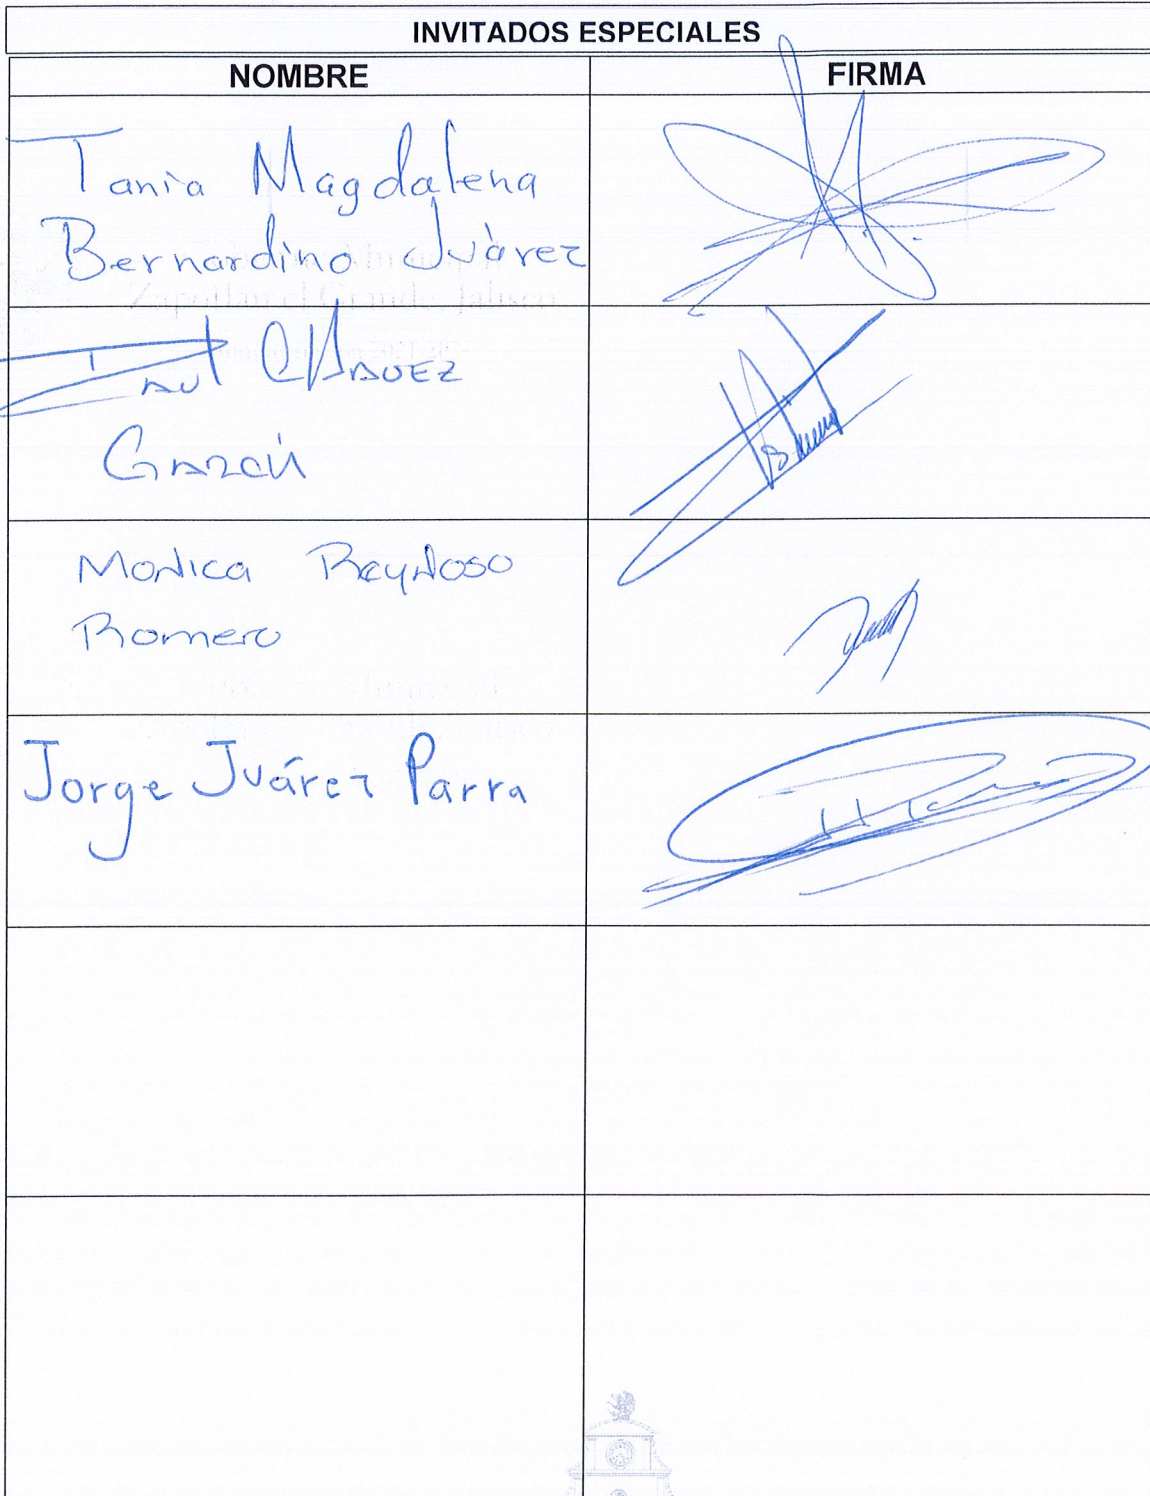 INVITADOS ESPECIALES
NOMBRE FIRMA
Tania Magdalena
Bernardino Juárez
CHAVEZ
Monica Reynoso
Romero
Jorge Juárez Parra